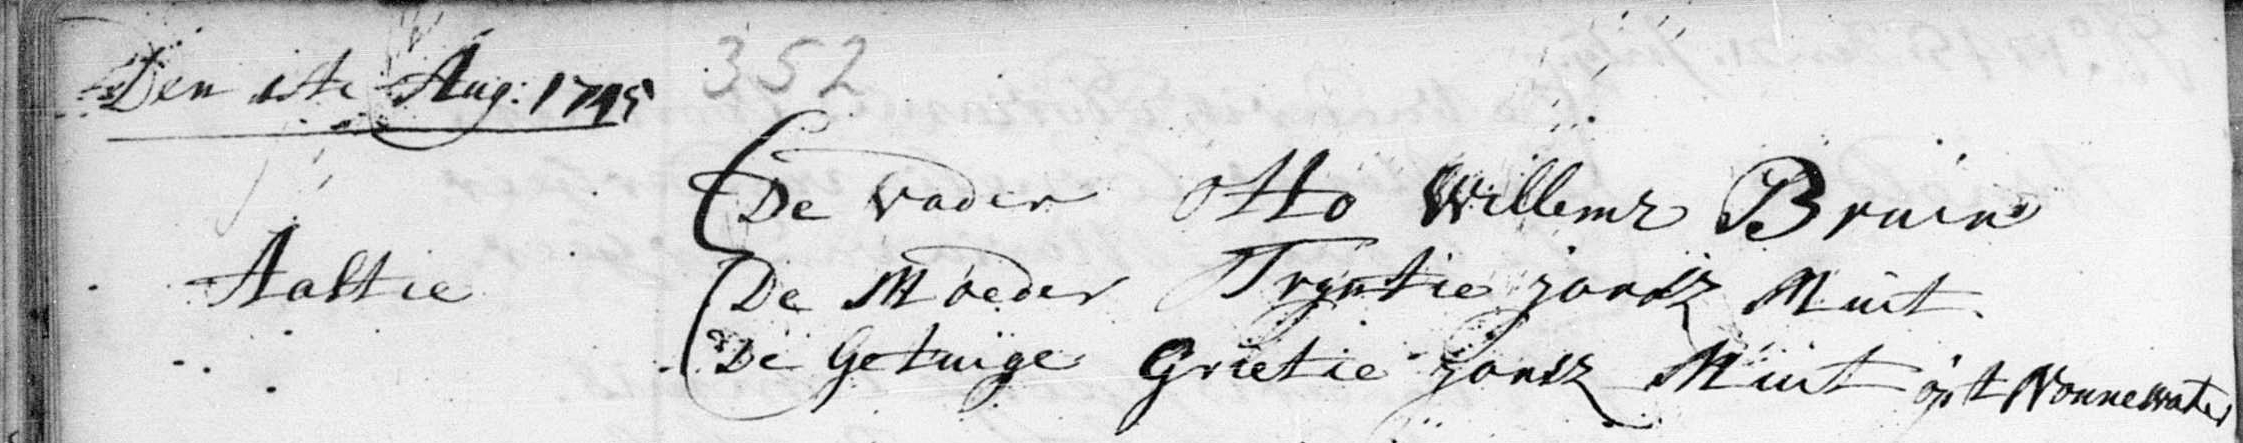 Den 1ste Aug: 1745
352
De vader Otto Willemz Bruin
Aaltie
De Moeder Tryntie Jansz Muit
De Getuige Grietie Jansz Muit op't Nonnewater